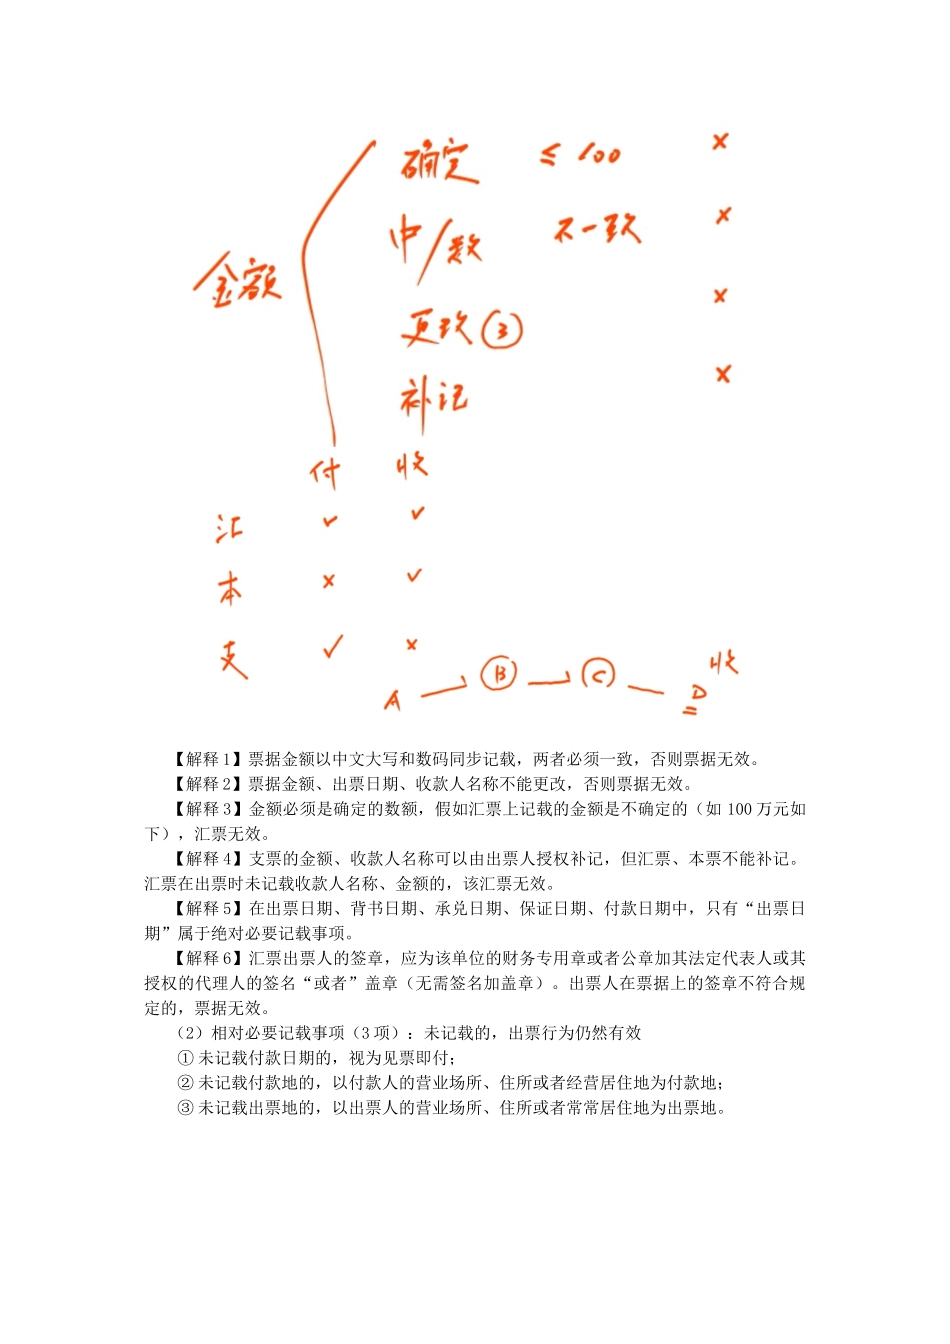 确定 ≤100 ×
中/数 不一致 ×
金额
更改③ ×
补记 ×
付 收
汇 ✓ ✓
本 × ✓
支 ✓ ×
A → B → C — D 收
【解释 1】票据金额以中文大写和数码同步记载，两者必须一致，否则票据无效。
【解释 2】票据金额、出票日期、收款人名称不能更改，否则票据无效。
【解释 3】金额必须是确定的数额，假如汇票上记载的金额是不确定的（如 100 万元如
下），汇票无效。
【解释 4】支票的金额、收款人名称可以由出票人授权补记，但汇票、本票不能补记。
汇票在出票时未记载收款人名称、金额的，该汇票无效。
【解释 5】在出票日期、背书日期、承兑日期、保证日期、付款日期中，只有“出票日
期”属于绝对必要记载事项。
【解释 6】汇票出票人的签章，应为该单位的财务专用章或者公章加其法定代表人或其
授权的代理人的签名“或者”盖章（无需签名加盖章）。出票人在票据上的签章不符合规
定的，票据无效。
（2）相对必要记载事项（3 项）：未记载的，出票行为仍然有效
① 未记载付款日期的，视为见票即付；
② 未记载付款地的，以付款人的营业场所、住所或者经营居住地为付款地；
③ 未记载出票地的，以出票人的营业场所、住所或者常常居住地为出票地。